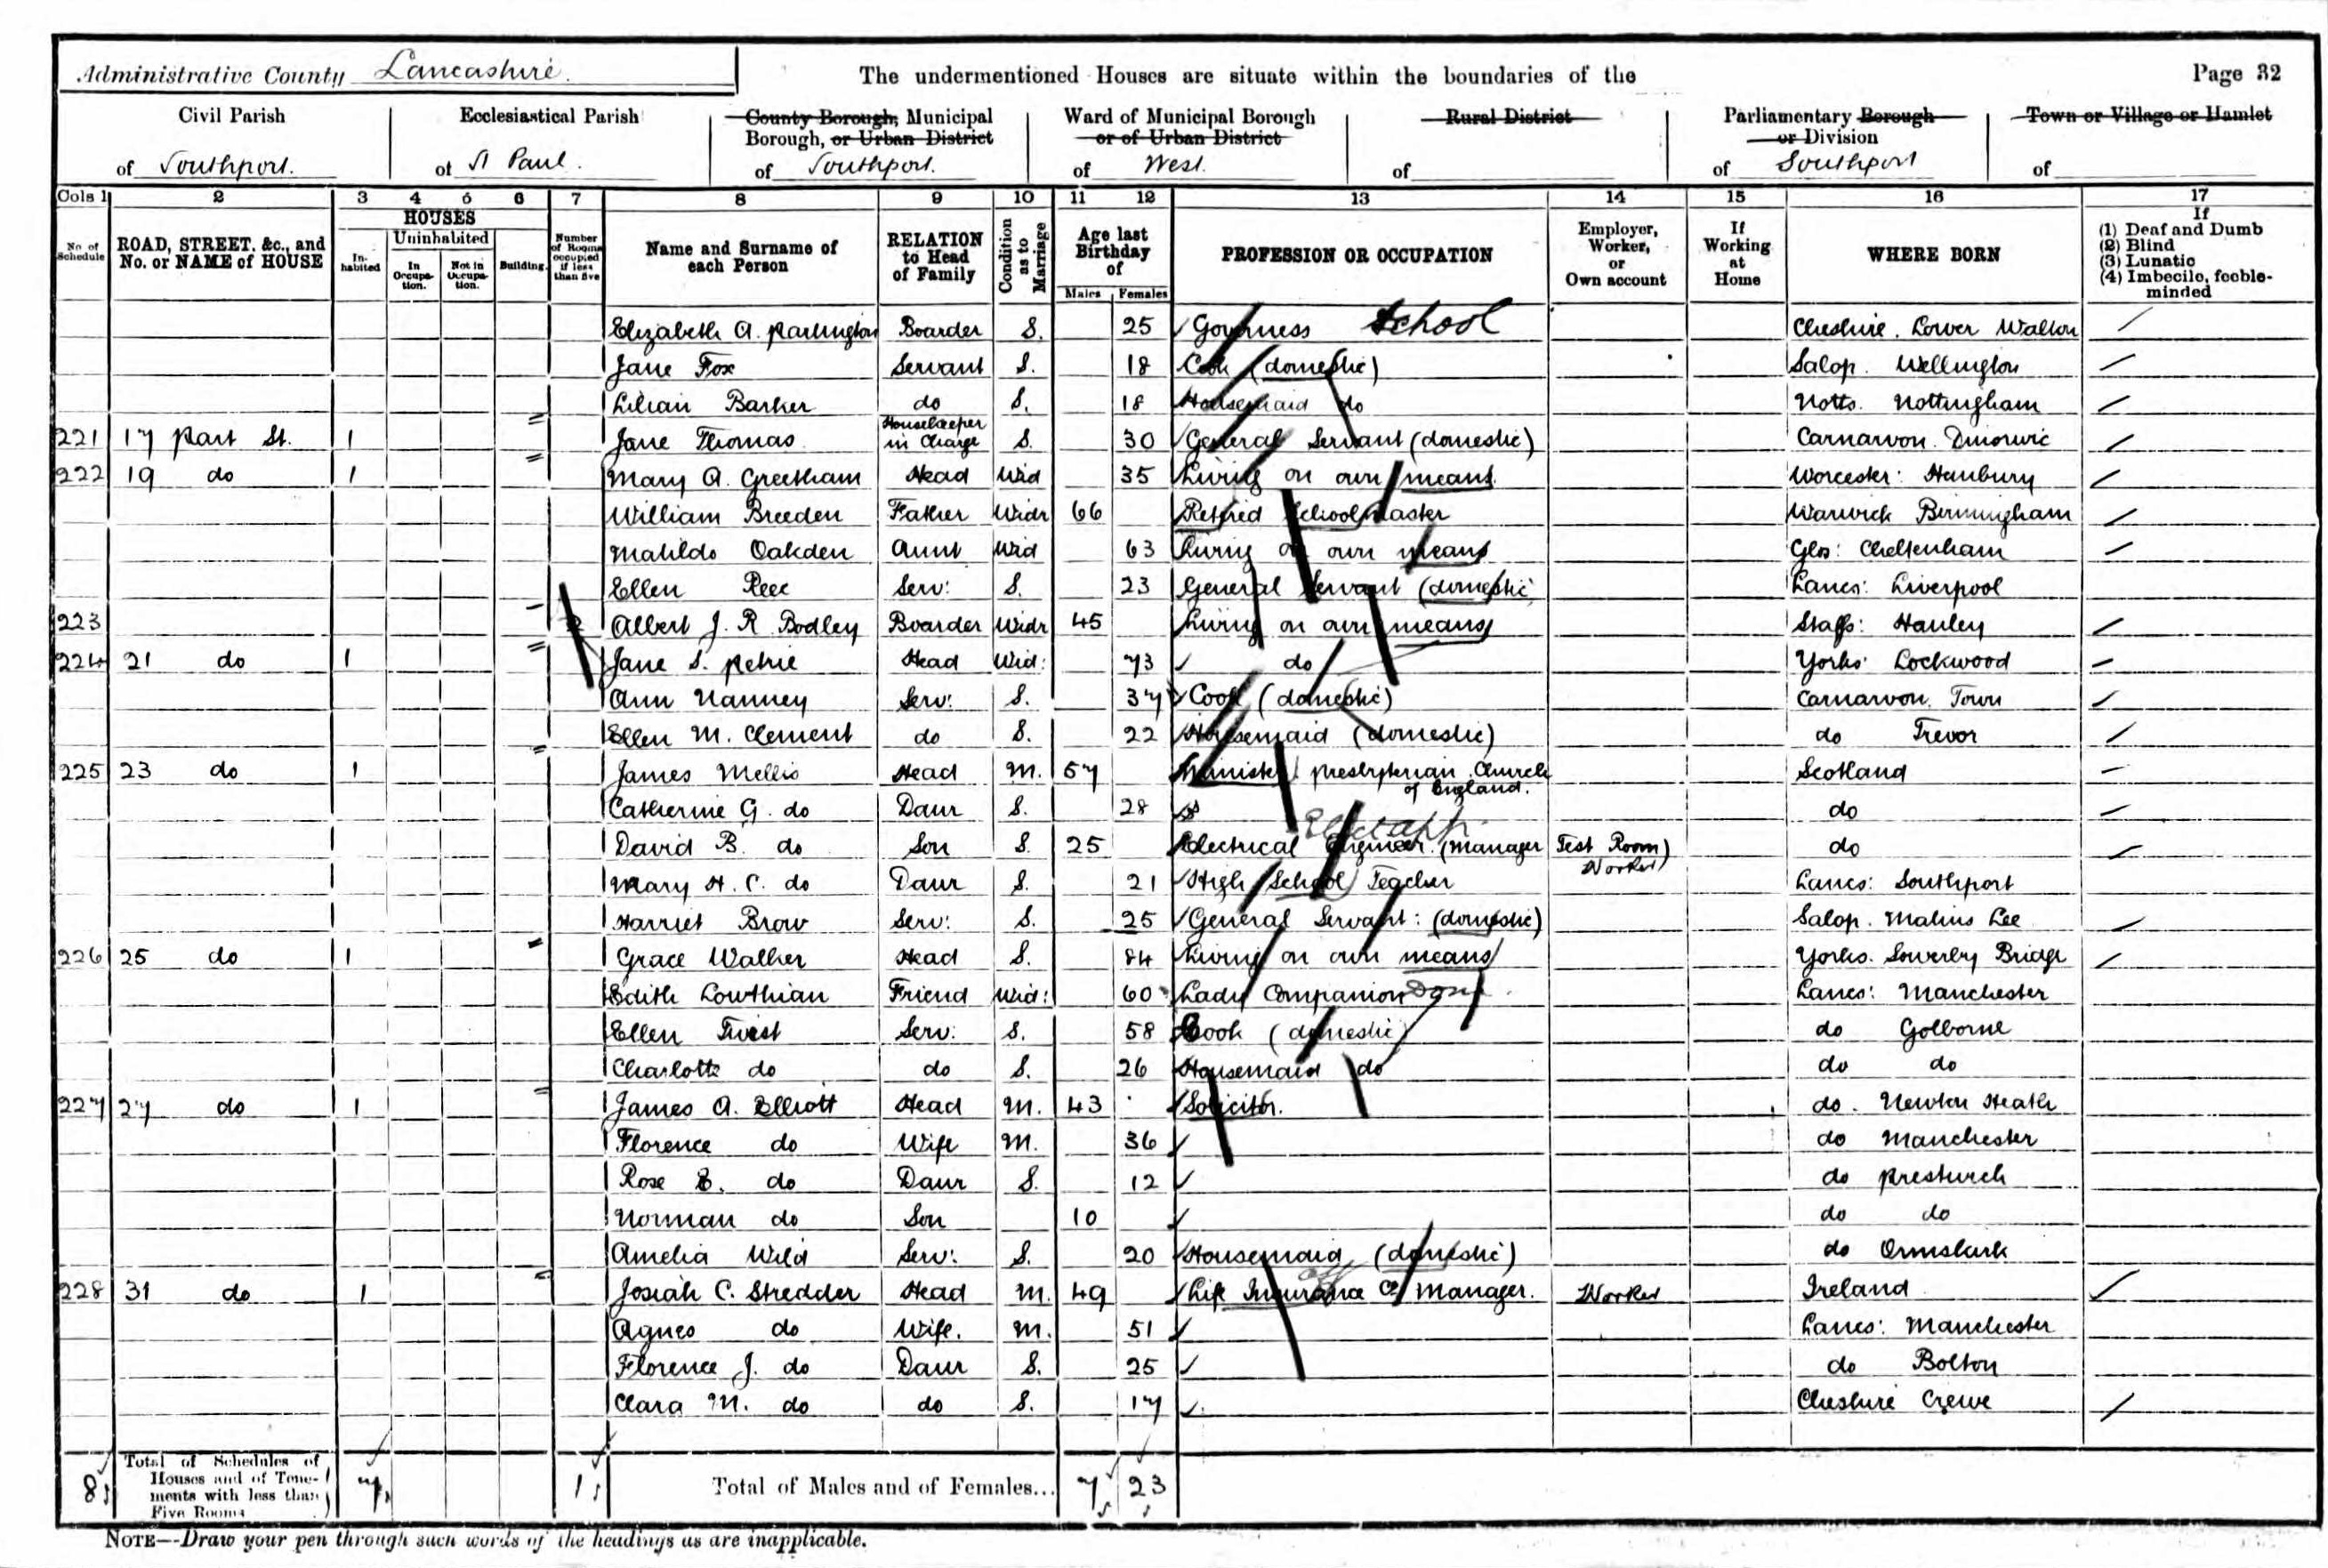 Administrative County Lancashire. The undermentioned Houses are situate within the boundaries of the Page 32
Civil Parish Ecclesiastical Parish County Borough, Municipal Ward of Municipal Borough Rural District Parliamentary Borough Town or Village or Hamlet
Borough, or Urban District or of Urban District or Division
of Southport. of St Paul. of Southport. of West. of of Southport of
Cols 1 2 3 4 5 6 7 8 9 10 11 12 13 14 15 16 17
No of Schedule ROAD, STREET, &c., and No. or NAME of HOUSE HOUSES In-habited Uninhabited In Occupa-tion. Not in Occupa-tion. Building. Number of Rooms occupied if less than five Name and Surname of each Person RELATION to Head of Family Condition as to Marriage Age last Birthday of Males Females PROFESSION OR OCCUPATION Employer, Worker, or Own account If Working at Home WHERE BORN If (1) Deaf and Dumb (2) Blind (3) Lunatic (4) Imbecile, feeble-minded
Elizabeth A. Partington Boarder S. 25 Governess School Cheshire. Lower Walton
Jane Fox Servant S. 18 Cook (domestic) Salop. Wellington
Lilian Barker do S. 18 Housemaid do Notts. Nottingham
221 17 Part St. 1 Jane Thomas Housekeeper in Charge S. 30 General Servant (domestic) Carnarvon. Dinorwic
222 19 do 1 Mary A. Greetham Head Wid 35 Living on own means Worcester: Hanbury
William Breeden Father Widr 66 Retired Schoolmaster Warwick Birmingham
Matilda Oakden Aunt Wid 63 Living on own means Glos: Cheltenham
Ellen Ree Serv: S. 23 General Servant (domestic) Lancs: Liverpool
223 2 Albert J. R. Bodley Boarder Widr 45 Living on own means Staffs: Hanley
224 21 do 1 Jane S. Petrie Head Wid: 73 do Yorks: Lockwood
Ann Nanney Serv: S. 37 Cook (domestic) Carnarvon. Town
Ellen M. Clement do S. 22 Housemaid (domestic) do Trevor
225 23 do 1 James Mellis Head M. 57 Minister Presbyterian Church of England. Scotland
Catherine G. do Daur S. 28 do
David B. do Son S 25 Electrical Engineer. (Manager Test Room) Worker Elect app. do
Mary H. C. do Daur S. 21 High School Teacher Lancs: Southport
Harriet Brow Serv: S. 25 General Servant: (domestic) Salop. Malins Lee
226 25 do 1 Grace Walker Head S. 84 Living on own means Yorks. Sowerby Bridge
Edith Lowthian Friend Wid: 60 Lady Companion Dom Lancs: Manchester
Ellen Twist Serv: S. 58 Cook (domestic) do Golborne
Charlotte do do S. 26 Housemaid do do do
227 27 do 1 James A. Elliott Head M. 43 Solicitor. do. Newton Heath
Florence do Wife M. 36 do Manchester
Rose E. do Daur S. 12 do Prestwich
Norman do Son 10 do do
Amelia Wild Serv: S. 20 Housemaid (domestic) do Ormskirk
228 31 do 1 Josiah C. Stredder Head M. 49 Life Insurance Co Manager. Worker Ireland
Agnes do Wife. M. 51 Lancs: Manchester
Florence J. do Daur S. 25 do Bolton
Clara M. do do S. 17 Cheshire Crewe
8 Total of Schedules of Houses and of Tene-ments with less than Five Rooms 7 1 Total of Males and of Females... 7 23
NOTE—Draw your pen through such words of the headings as are inapplicable.